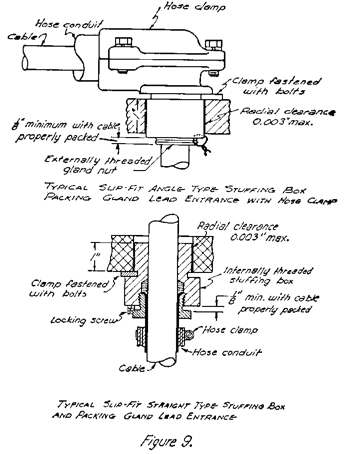 Hose clamp
Hose conduit
Cable
Clamp fastened
with bolts
Radial clearance
0.003" max.
1/8" minimum with cable
properly packed
Externally threaded
gland nut
TYPICAL SLIP-FIT ANGLE TYPE STUFFING BOX
PACKING GLAND LEAD ENTRANCE WITH HOSE CLAMP
Radial clearance
0.003" max.
1"
Clamp fastened
with bolts
Internally threaded
stuffing box
1/8" min. with cable
properly packed
Locking screw
Hose clamp
Hose conduit
Cable
TYPICAL SLIP-FIT STRAIGHT TYPE STUFFING BOX
AND PACKING GLAND LEAD ENTRANCE
Figure 9.